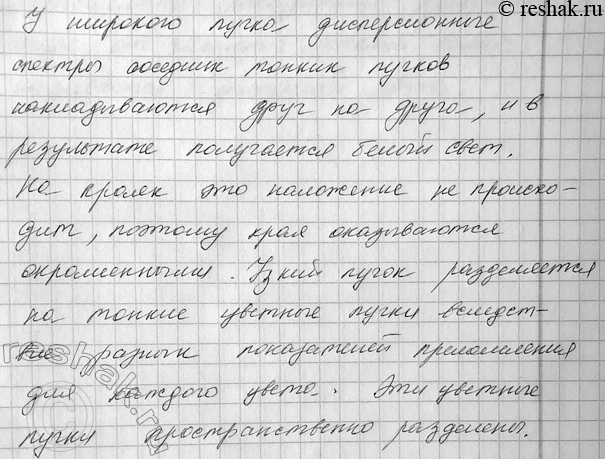 © reshak.ru
У широкого пучка дисперсионные
спектры соседних тонких пучков
накладываются друг на друга, и в
результате получается белый свет.
На краях это наложение не происхо-
дит, поэтому края оказываются
окрашенными. Узкий пучок разделяется
на тонкие цветные пучки вследст-
вие разных показателей преломления
для каждого цвета. Эти цветные
пучки пространственно разделены.
reshak.ru